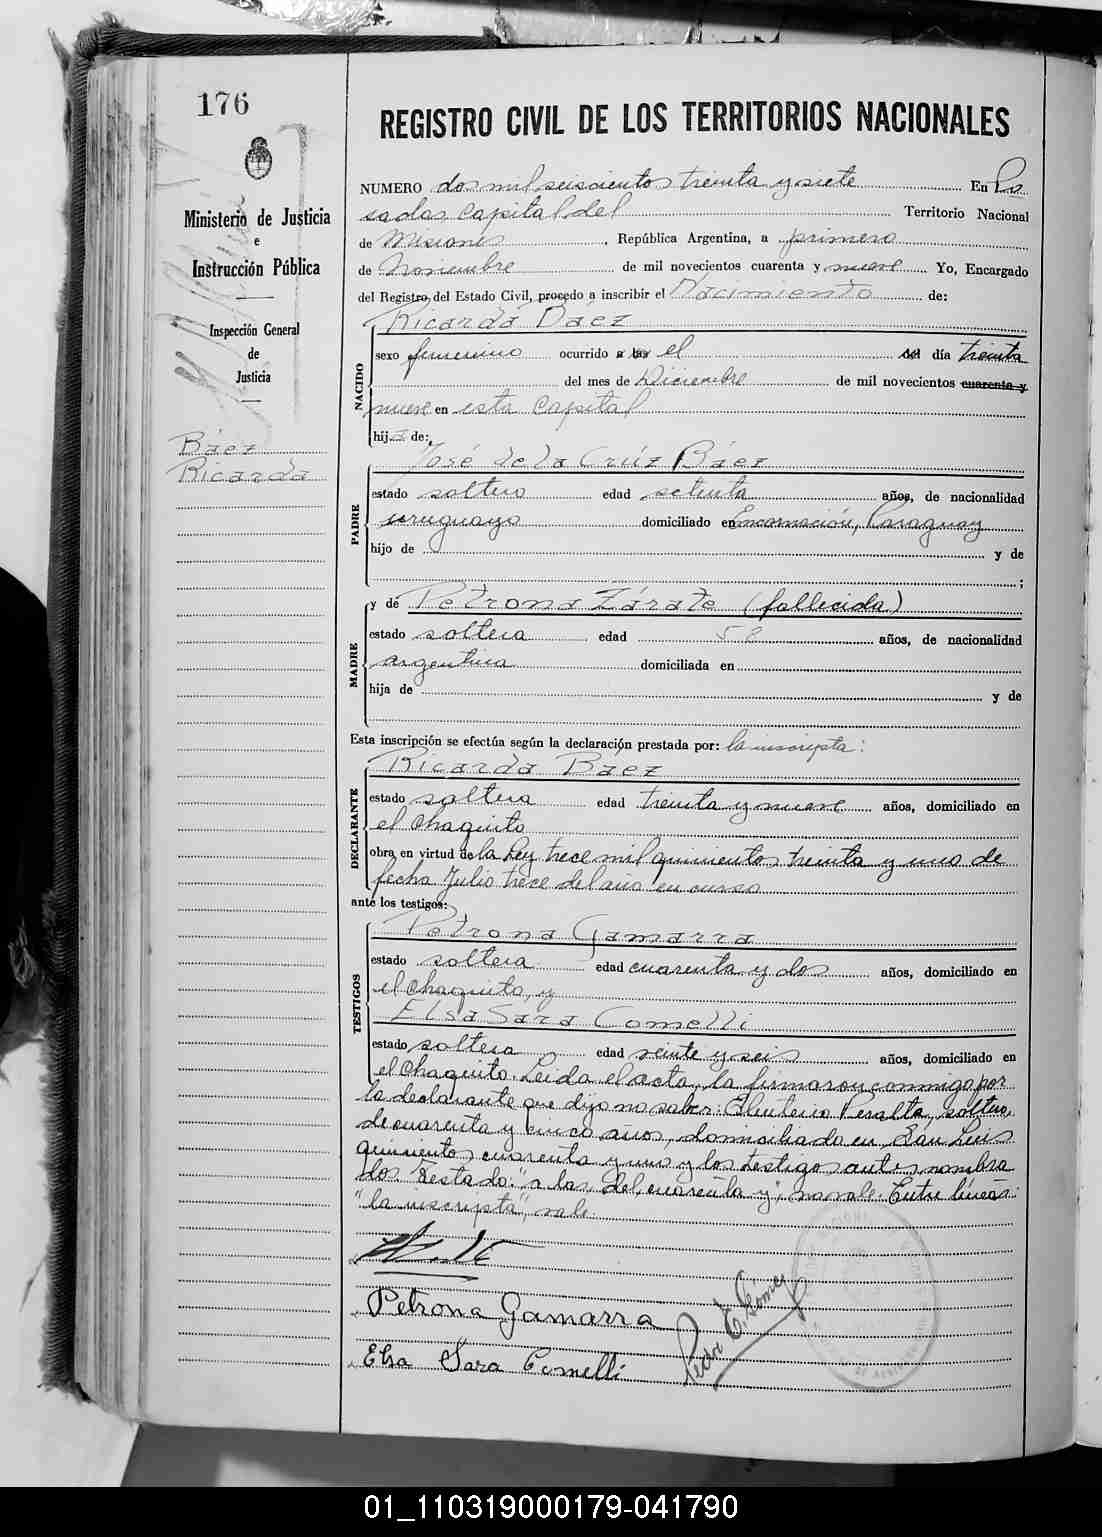 176
Ministerio de Justicia
e
Instrucción Pública
Inspección General
de
Justicia
Báez
Ricarda
REGISTRO CIVIL DE LOS TERRITORIOS NACIONALES
NUMERO dos mil seiscientos treinta y siete En Po
sadas capital del Territorio Nacional
de Misiones, República Argentina, a primero
de Noviembre de mil novecientos cuarenta y nueve Yo, Encargado
del Registro del Estado Civil, procedo a inscribir el Nacimiento de:
Ricarda Báez
NACIDO
sexo femenino ocurrido a las el del día treinta
del mes de Diciembre de mil novecientos cuarenta y
nueve en esta Capital
hija de:
José de la Crúz Báez
PADRE
estado soltero edad setenta años, de nacionalidad
uruguayo domiciliado en Encarnación, Paraguay
hijo de y de
;
y de Petrona Zárate (fallecida)
MADRE
estado soltera edad 58 años, de nacionalidad
argentina domiciliada en
hija de y de
Esta inscripción se efectúa según la declaración prestada por: la inscripta:
Ricarda Báez
DECLARANTE
estado soltera edad treinta y nueve años, domiciliado en
el Chaquito
obra en virtud de la Ley trece mil quinientos treinta y uno de
fecha Julio trece del año en curso
ante los testigos:
Petrona Gamarra
TESTIGOS
estado soltera edad cuarenta y dos años, domiciliado en
el Chaquito, y
Elsa Sara Comelli
estado soltera edad veinte y seis años, domiciliado en
el Chaquito. Leída el acta, la firmaron conmigo por
la declarante que dijo no saber: Eleuterio Peralta, soltero,
de cuarenta y cinco años, domiciliado en San Luis
quinientos cuarenta y uno y los testigos antes nombra
dos. Testado: "a las, del, cuarenta y", no vale. Entre líneas:
"la inscripta", vale.
Petrona Gamarra
Elsa Sara Comelli
Pedro E. Gómez
01_110319000179-041790